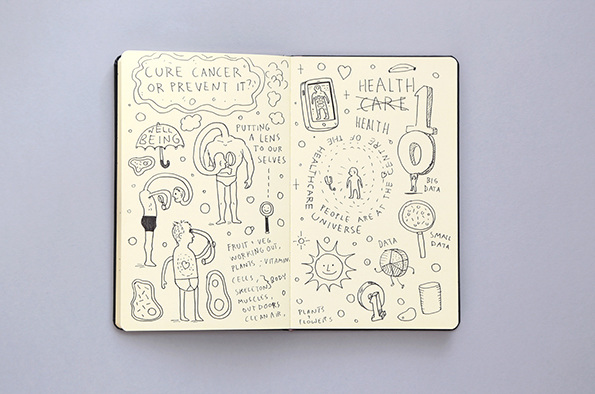 CURE CANCER
OR PREVENT IT?
WELL
BEING
PUTTING
A LENS
TO OUR
SELVES
FRUIT + VEG
WORKING OUT,
PLANTS + VITAMIN
CELLS, BODY
SKELETONS
MUSCLES,
OUTDOORS
CLEAN AIR,
HEALTH
CARE
HEALTH
PEOPLE ARE AT THE CENTRE OF THE HEALTHCARE
UNIVERSE
10
BIG
DATA
SMALL
DATA
DATA
PLANTS
+
FLOWERS